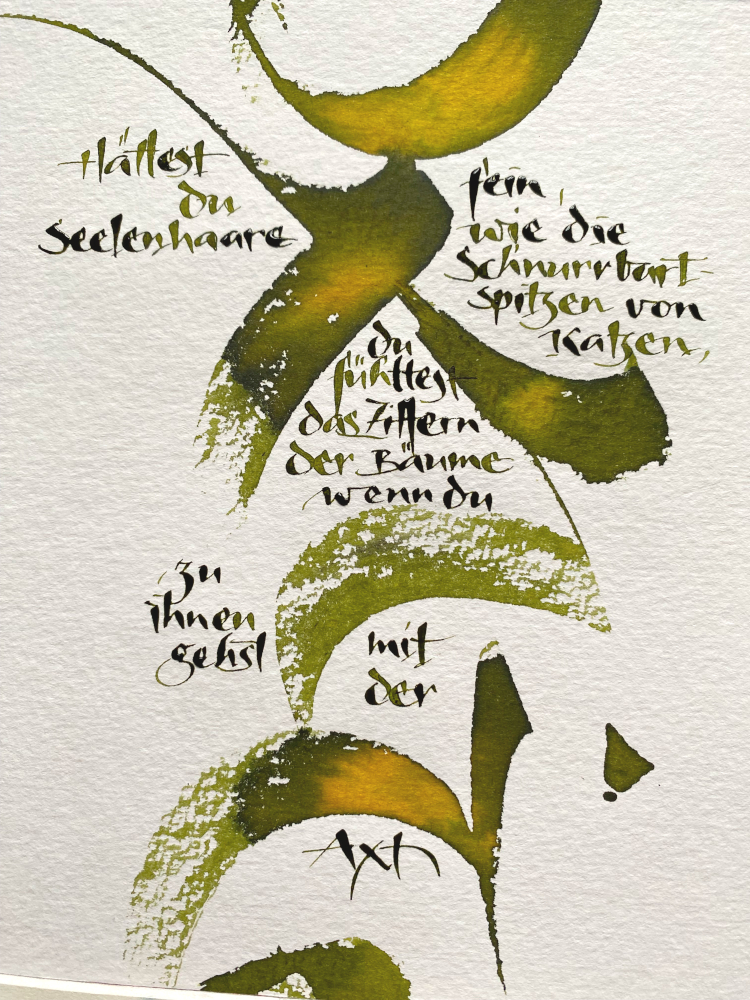 Hättest
du
Seelenhaare
fein
wie die
Schnurrbart-
spitzen von
Katzen,
du
fühltest
das Zittern
der Bäume
wenn du
zu
ihnen
gehst
mit
der
Axt